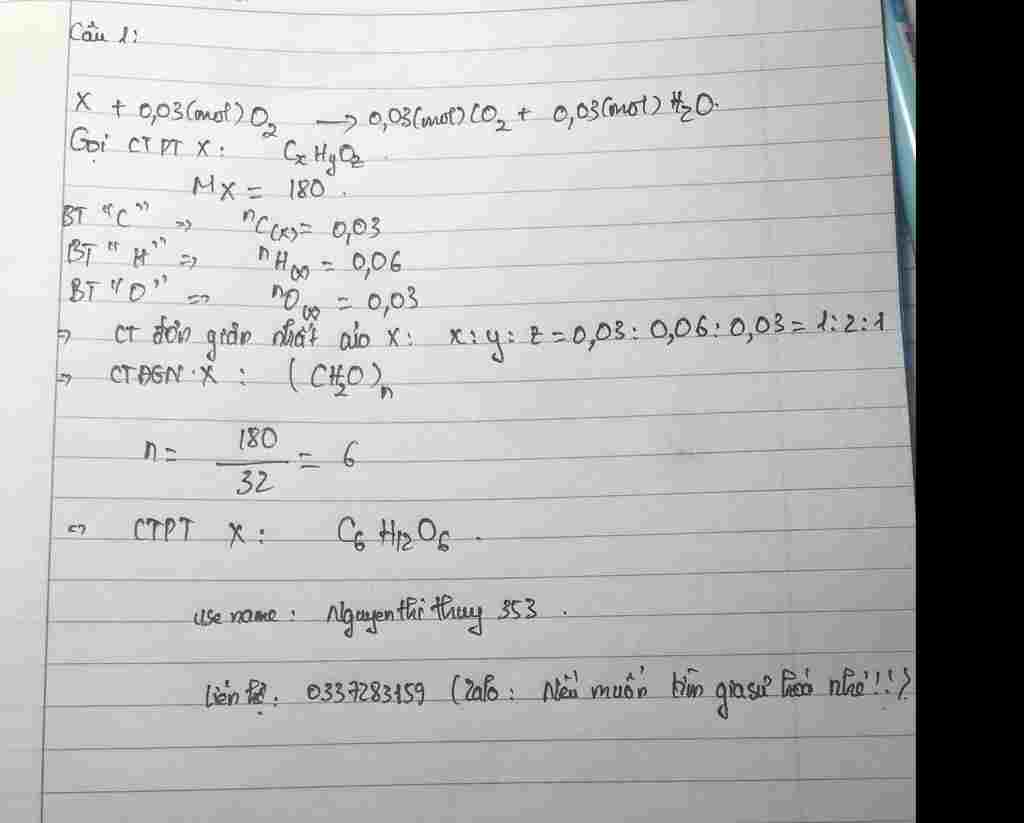 Câu 1:
X + 0,03(mol) O2 → 0,03(mol) CO2 + 0,03(mol) H2O.
Gọi CTPT X: CxHyOz.
MX = 180.
BT "C" => nC(X) = 0,03
BT "H" => nH(X) = 0,06
BT "O" => nO(X) = 0,03
=> CT đơn giản nhất của X: x : y : z = 0,03 : 0,06 : 0,03 = 1 : 2 : 1
=> CTĐGN X: (CH2O)n
n = 180/32 = 6
=> CTPT X: C6H12O6.
use name: Nguyenthithuy 353.
Liên hệ: 0337283159 (Zalo: Nếu muốn tìm gia sư hoá nhé!!!)